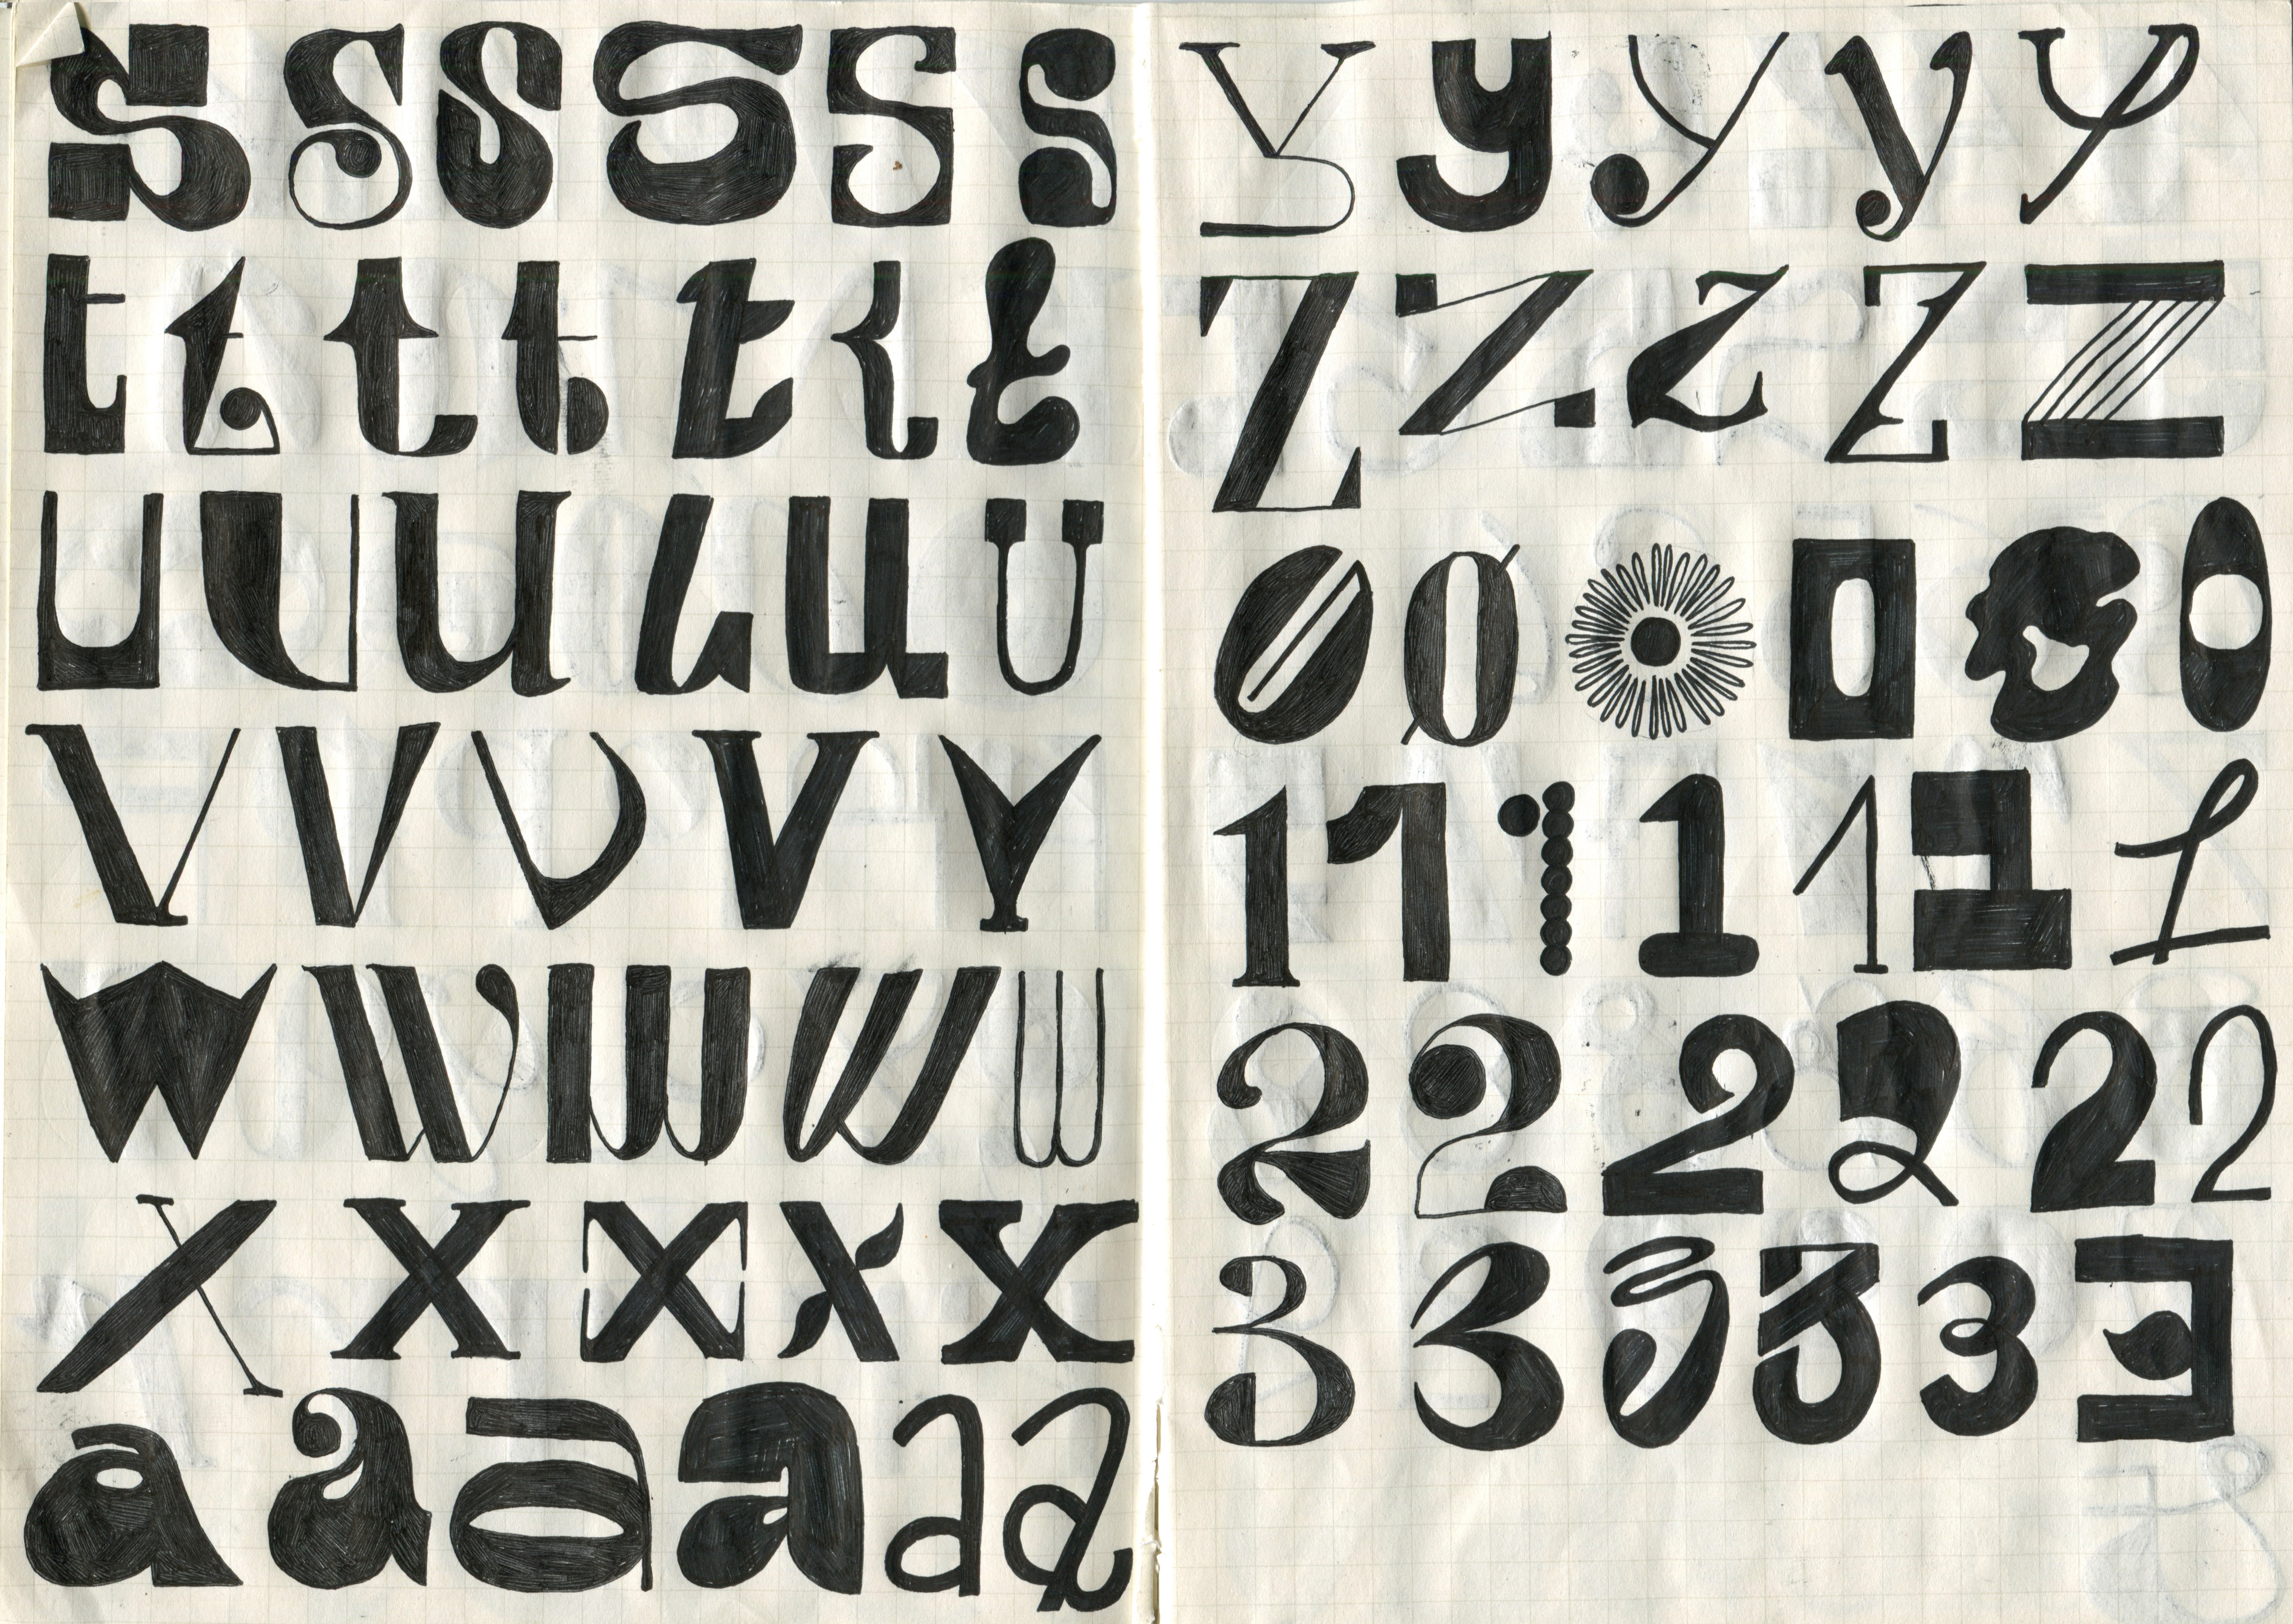 s s s s s s
t t t t t t t
u u u u u u
v v v v v
w w w w w
x x x x x
a a a a a a
y y y y y
z z z z z
0 0 0 0 0 0
1 1 1 1 1 1 1
2 2 2 2 2 2
3 3 3 3 3 3